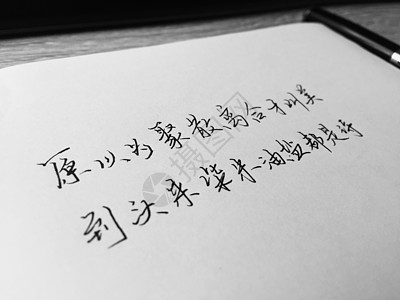 原以为聚散离合才叫美
到头来柴米油盐都是诗